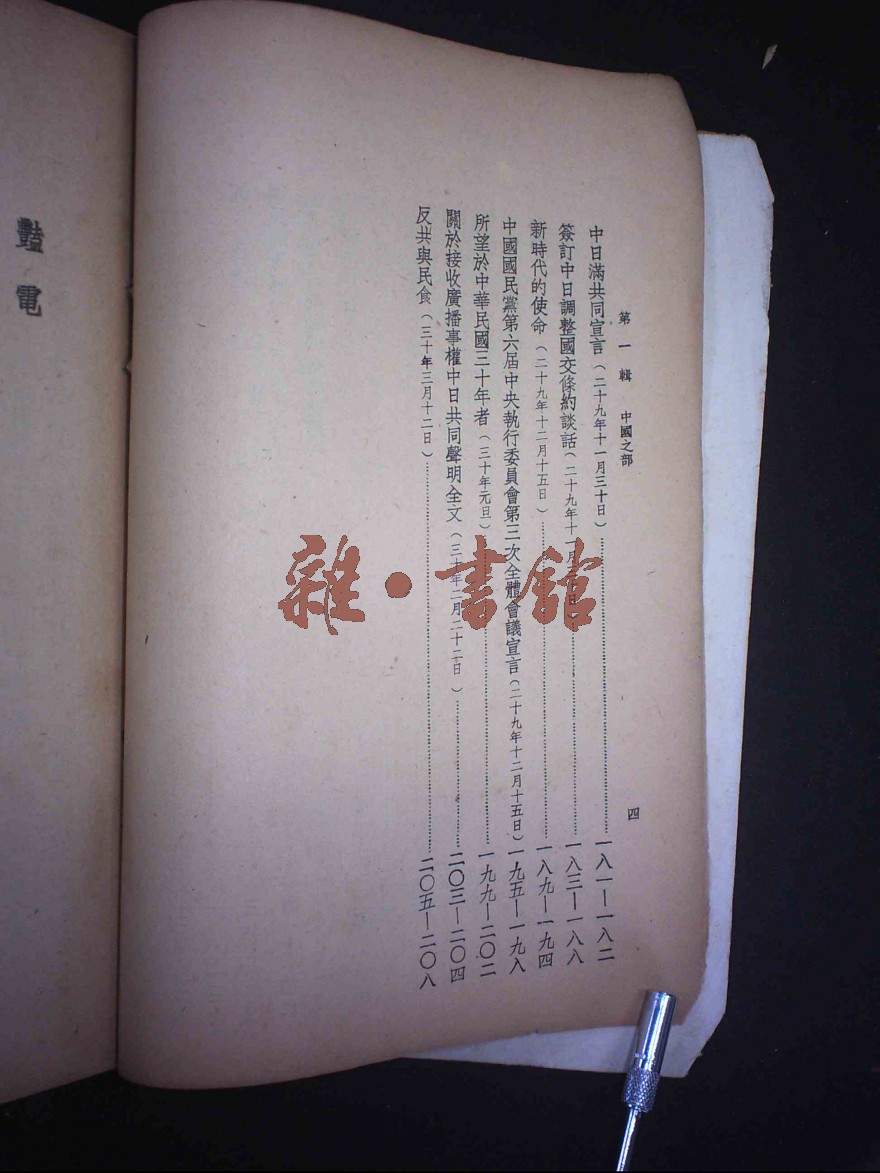 第一輯 中國之部 四
中日滿共同宣言(二十九年十一月三十日)…………一八一—一八二
簽訂中日調整國交條約談話(二十九年十一月 日)…………一八三—一八八
新時代的使命(二十九年十二月十五日)…………一八九—一九四
中國國民黨第六屆中央執行委員會第三次全體會議宣言(二十九年十二月十五日)一九五—一九八
所望於中華民國三十年者(三十年元旦)…………一九九—二〇二
關於接收廣播事權中日共同聲明全文(三十年二月二十二日)…………二〇三—二〇四
反共與民食(三十年三月十二日)…………二〇五—二〇八
豔電
雜·書館